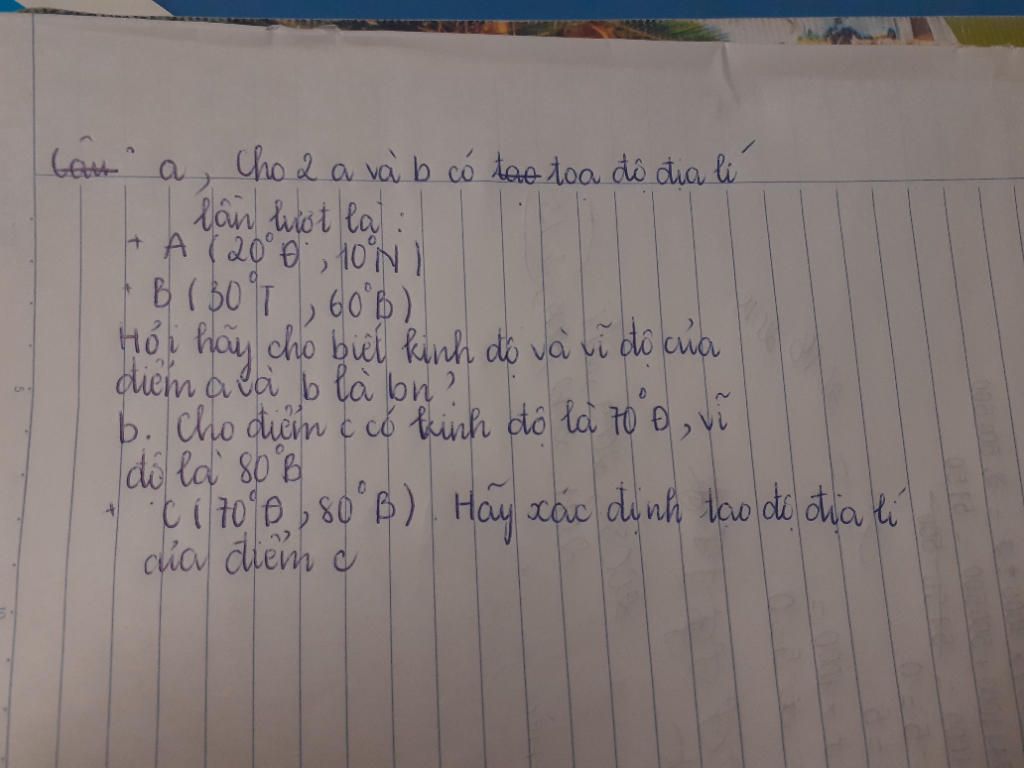 Câu a, Cho 2 a và b có tạo toạ độ địa lí
lần lượt là:
+ A (20°Đ, 10°N)
+ B (30°T, 60°B)
Hỏi hãy cho biết kinh độ và vĩ độ của
điểm a và b là bn?
b. Cho điểm c có kinh độ là 70°Đ, vĩ
độ là 80°B
+ C (70°Đ, 80°B). Hãy xác định tạo độ địa lí
của điểm c